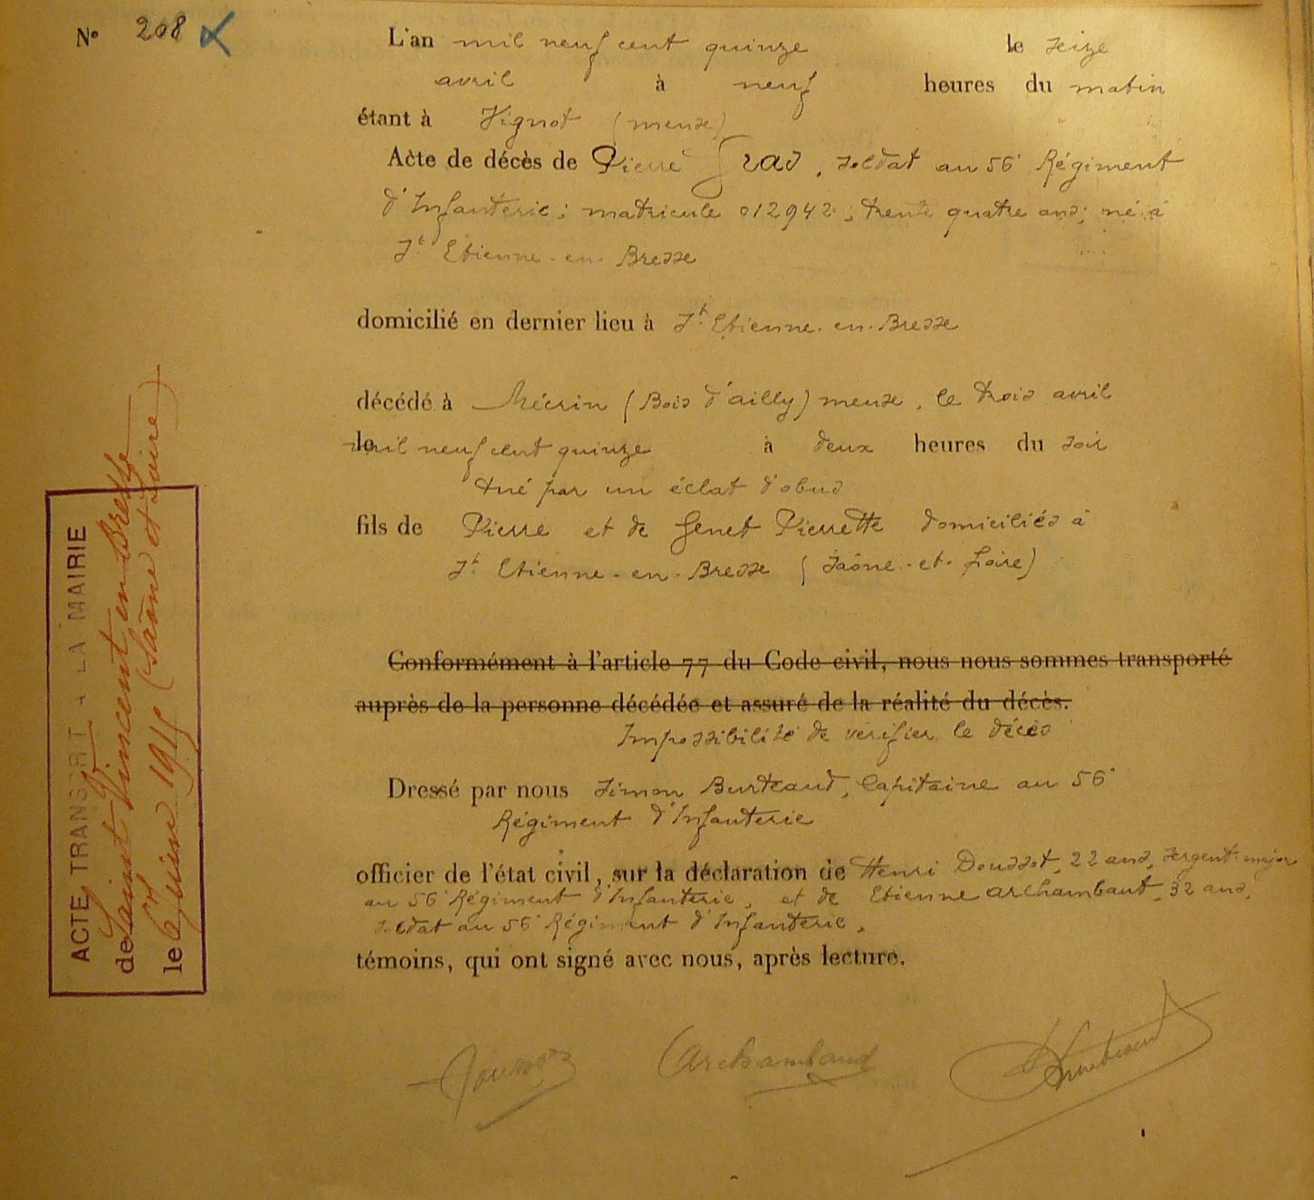 N° 208
L'an mil neuf cent quinze le seize
avril à neuf heures du matin
étant à Vignot (meuse)
Acte de décès de Pierre Grad, soldat au 56e Régiment
d'Infanterie; matricule 012942; trente quatre ans; né à
St Etienne-en-Bresse
domicilié en dernier lieu à St Etienne-en-Bresse
décédé à Mécrin (Bois d'ailly) meuse, le trois avril
le mil neuf cent quinze à deux heures du soir
tué par un éclat d'obus
fils de Pierre et de Genet Pierrette domiciliés à
St Etienne-en-Bresse (Saône-et-Loire)
Conformément à l'article 77 du Code civil, nous nous sommes transporté
auprès de la personne décédée et assuré de la réalité du décès.
Impossibilité de vérifier le décès
Dressé par nous Simon Burteaud, Capitaine au 56e
Régiment d'Infanterie
officier de l'état civil, sur la déclaration de Henri Doussot, 22 ans, sergent-major
au 56e Régiment d'Infanterie, et de Etienne archambaut, 32 ans,
soldat au 56e Régiment d'Infanterie,
témoins, qui ont signé avec nous, après lecture.
Doussot Archambaud
ACTE TRANSCRIT A LA MAIRIE
de Saint Vincent en Bresse
le 6 Juin 1915 (Saône et Loire)